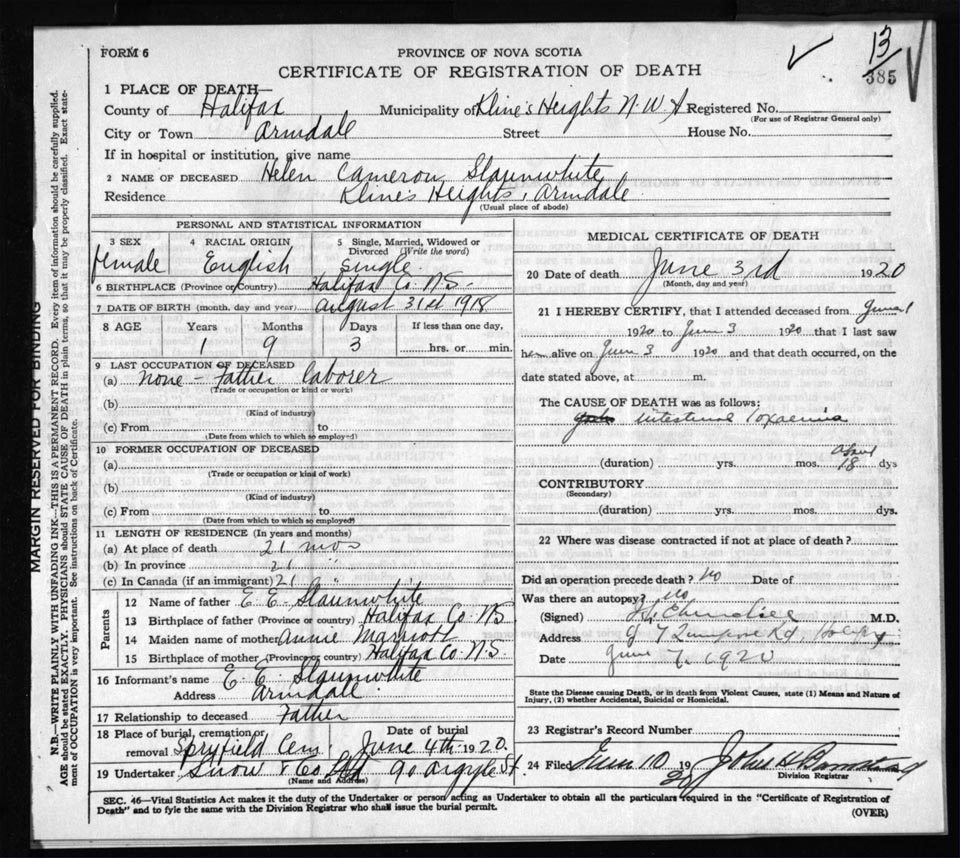 FORM 6
PROVINCE OF NOVA SCOTIA
13
385
CERTIFICATE OF REGISTRATION OF DEATH
1 PLACE OF DEATH—
County of Halifax Municipality of Kline's Heights N.W.A Registered No.
(For use of Registrar General only)
City or Town Armdale Street House No.
If in hospital or institution, give name
2 NAME OF DECEASED Helen Cameron Slaunwhite
Residence Kline's Heights, Armdale
(Usual place of abode)
PERSONAL AND STATISTICAL INFORMATION
3 SEX 4 RACIAL ORIGIN 5 Single, Married, Widowed or Divorced (Write the word)
female English Single
6 BIRTHPLACE (Province or Country) Halifax Co. N.S.
7 DATE OF BIRTH (month, day and year) August 31st 1918
8 AGE Years Months Days If less than one day,
1 9 3 hrs. or min.
9 LAST OCCUPATION OF DECEASED
(a) none - Father laborer
(Trade or occupation or kind of work)
(b)
(Kind of industry)
(c) From to
(Date from which to which so employed)
10 FORMER OCCUPATION OF DECEASED
(a)
(Trade or occupation or kind of work)
(b)
(Kind of industry)
(c) From to
(Date from which to which so employed)
11 LENGTH OF RESIDENCE (In years and months)
(a) At place of death 21 mos
(b) In province 21 "
(c) In Canada (if an immigrant) 21 "
Parents
12 Name of father E. E. Slaunwhite
13 Birthplace of father (Province or country) Halifax Co. NS
14 Maiden name of mother Annie Marriott
15 Birthplace of mother (Province or country) Halifax Co N.S.
16 Informant's name E. E. Slaunwhite
Address Armdale
17 Relationship to deceased Father
18 Place of burial, cremation or removal Spryfield Cem. Date of burial June 4th 1920.
19 Undertaker Snow & Co Ltd 90 Argyle St.
(Name and Address)
MEDICAL CERTIFICATE OF DEATH
20 Date of death June 3rd 1920
(Month, day and year)
21 I HEREBY CERTIFY, that I attended deceased from June 1
1920 to June 3 1920 that I last saw
her alive on June 3 1920 and that death occurred, on the
date stated above, at m.
The CAUSE OF DEATH was as follows:
Intestinal Toxaemia
(duration) yrs. mos. about 18 dys
CONTRIBUTORY
(Secondary)
(duration) yrs. mos. dys.
22 Where was disease contracted if not at place of death?
Did an operation precede death? No Date of
Was there an autopsy? No
(Signed) M.D.
Address Rd, Halifax
Date June 7, 1920
State the Disease causing Death, or in death from Violent Causes, state (1) Means and Nature of
Injury, (2) whether Accidental, Suicidal or Homicidal.
23 Registrar's Record Number
24 Filed June 10 1920 John H
Division Registrar
SEC. 46—Vital Statistics Act makes it the duty of the Undertaker or person acting as Undertaker to obtain all the particulars required in the "Certificate of Registration of
Death" and to fyle the same with the Division Registrar who shall issue the burial permit.
(OVER)
MARGIN RESERVED FOR BINDING
N.B.—WRITE PLAINLY WITH UNFADING INK—THIS IS A PERMANENT RECORD. Every item of information should be carefully supplied.
AGE should be stated EXACTLY. PHYSICIANS should STATE CAUSE OF DEATH in plain terms, so that it may be properly classified. Exact state-
ment of OCCUPATION is very important. See instructions on back of Certificate.